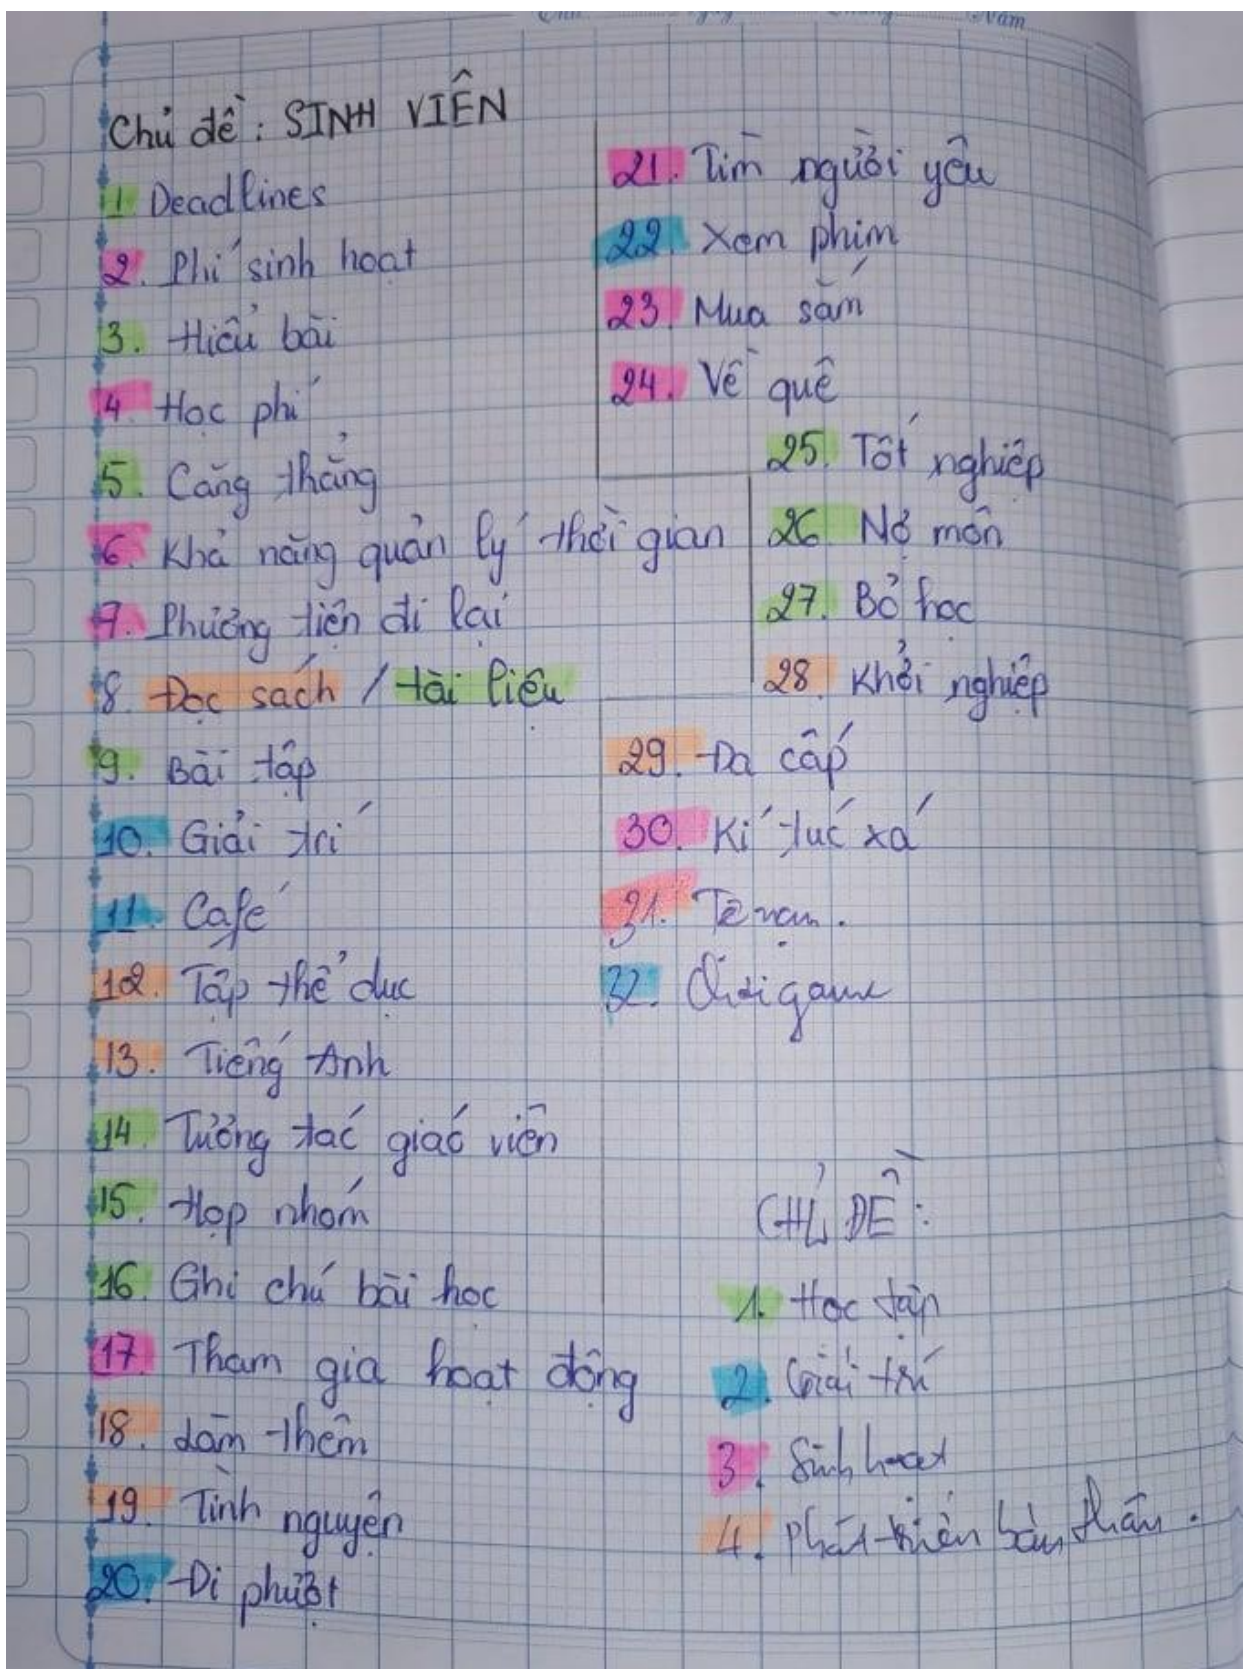 Năm
Chủ đề: SINH VIÊN
1 Deadlines
2. Phí sinh hoạt
3. Hiểu bài
4. Học phí
5. Căng thẳng
6. Khả năng quản lý thời gian
7. Phương tiện đi lại
8. Đọc sách / tài liệu
9. Bài tập
10. Giải trí
11. Café
12. Tập thể dục
13. Tiếng Anh
14. Tương tác giáo viên
15. Họp nhóm
16. Ghi chú bài học
17. Tham gia hoạt động
18. Làm thêm
19. Tình nguyện
20. Đi phượt
21. Tìm người yêu
22. Xem phim
23. Mua sắm
24. Về quê
25. Tốt nghiệp
26. Nợ môn
27. Bỏ học
28. Khởi nghiệp
29. Đa cấp
30. Kí túc xá
31. Tệ nạn.
32. Chơi game
CHỦ ĐỀ:
1. Học tập
2. Giải trí
3. Sinh hoạt
4. Phát triển bản thân.